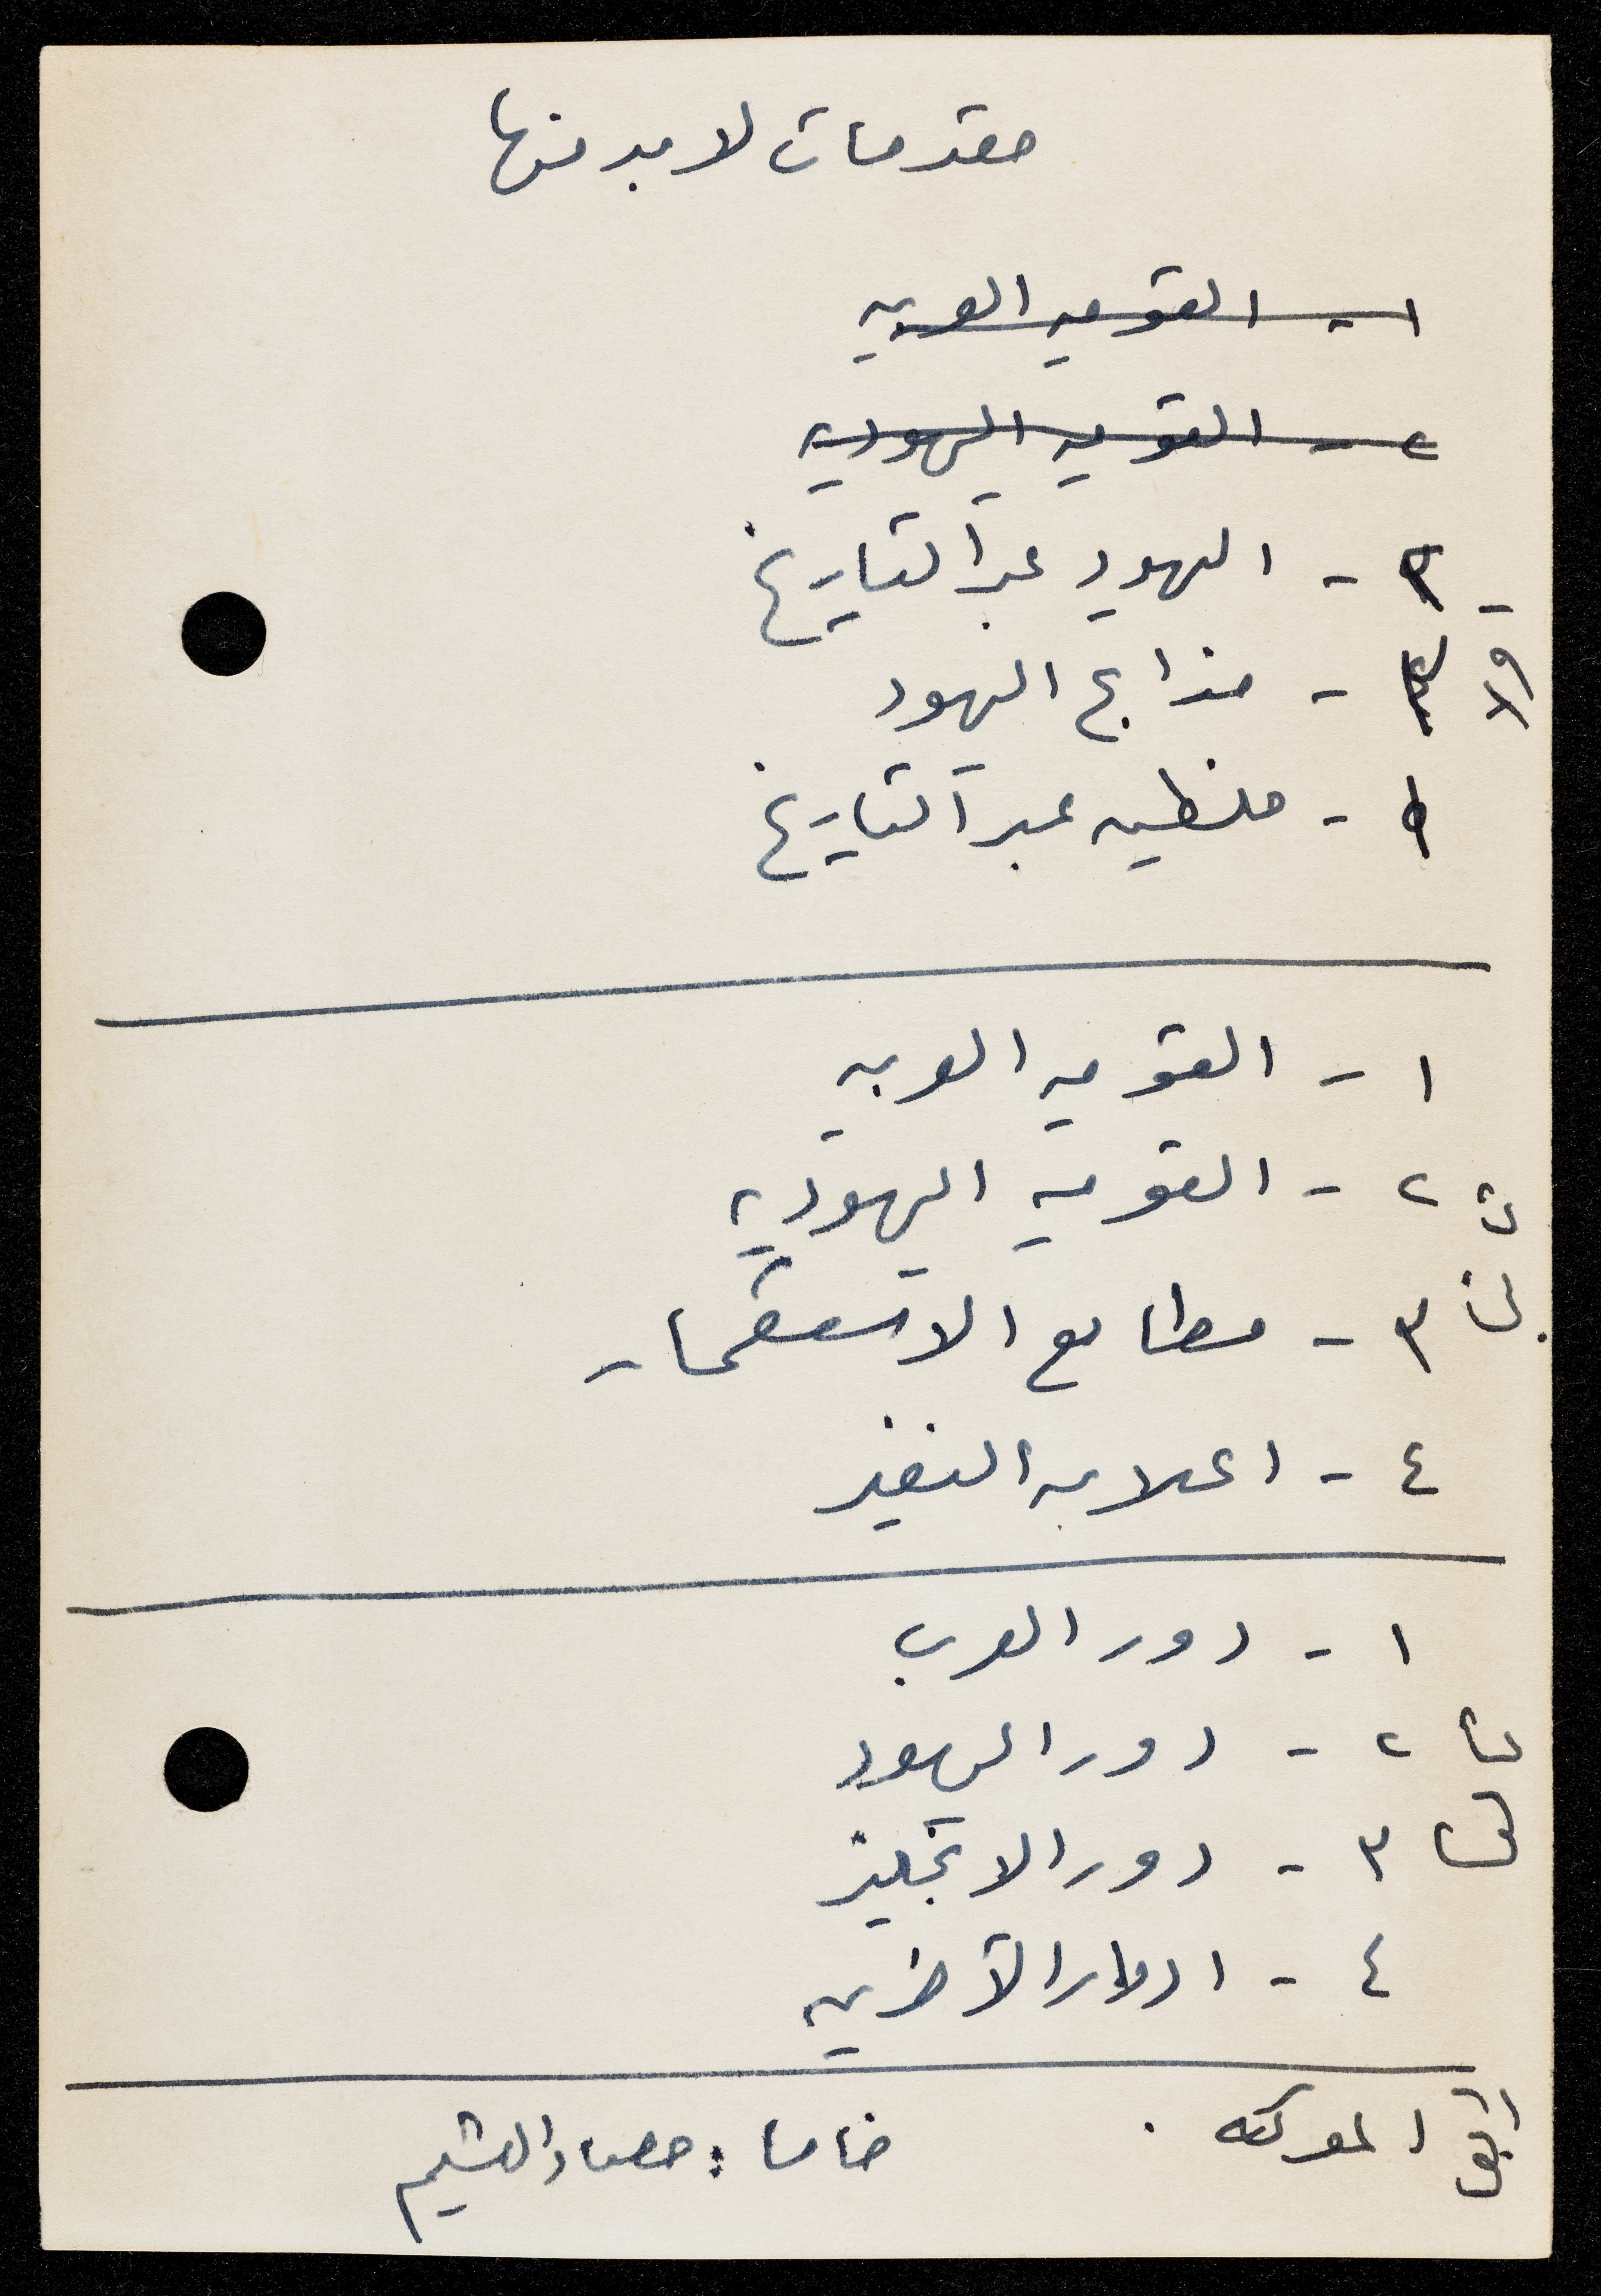 مقدمات لا بد منها
١ - القوميه العربيه
٢ - القوميه اليهوديه
اولا
١ - اليهود عبر التاريخ
٢ - مذابح اليهود
٣ - فلسطين عبر التاريخ
١ - القوميه العربيه
٢ - القوميه اليهوديه
٣ - مطامع الاستعمار
٤ - اعلان النفير
١ - دور العرب
٢ - دور اليهود
٣ - دور الانجليز
٤ - ادوار الآخرين
المعركه .
خامسا : حصاد الهشيم